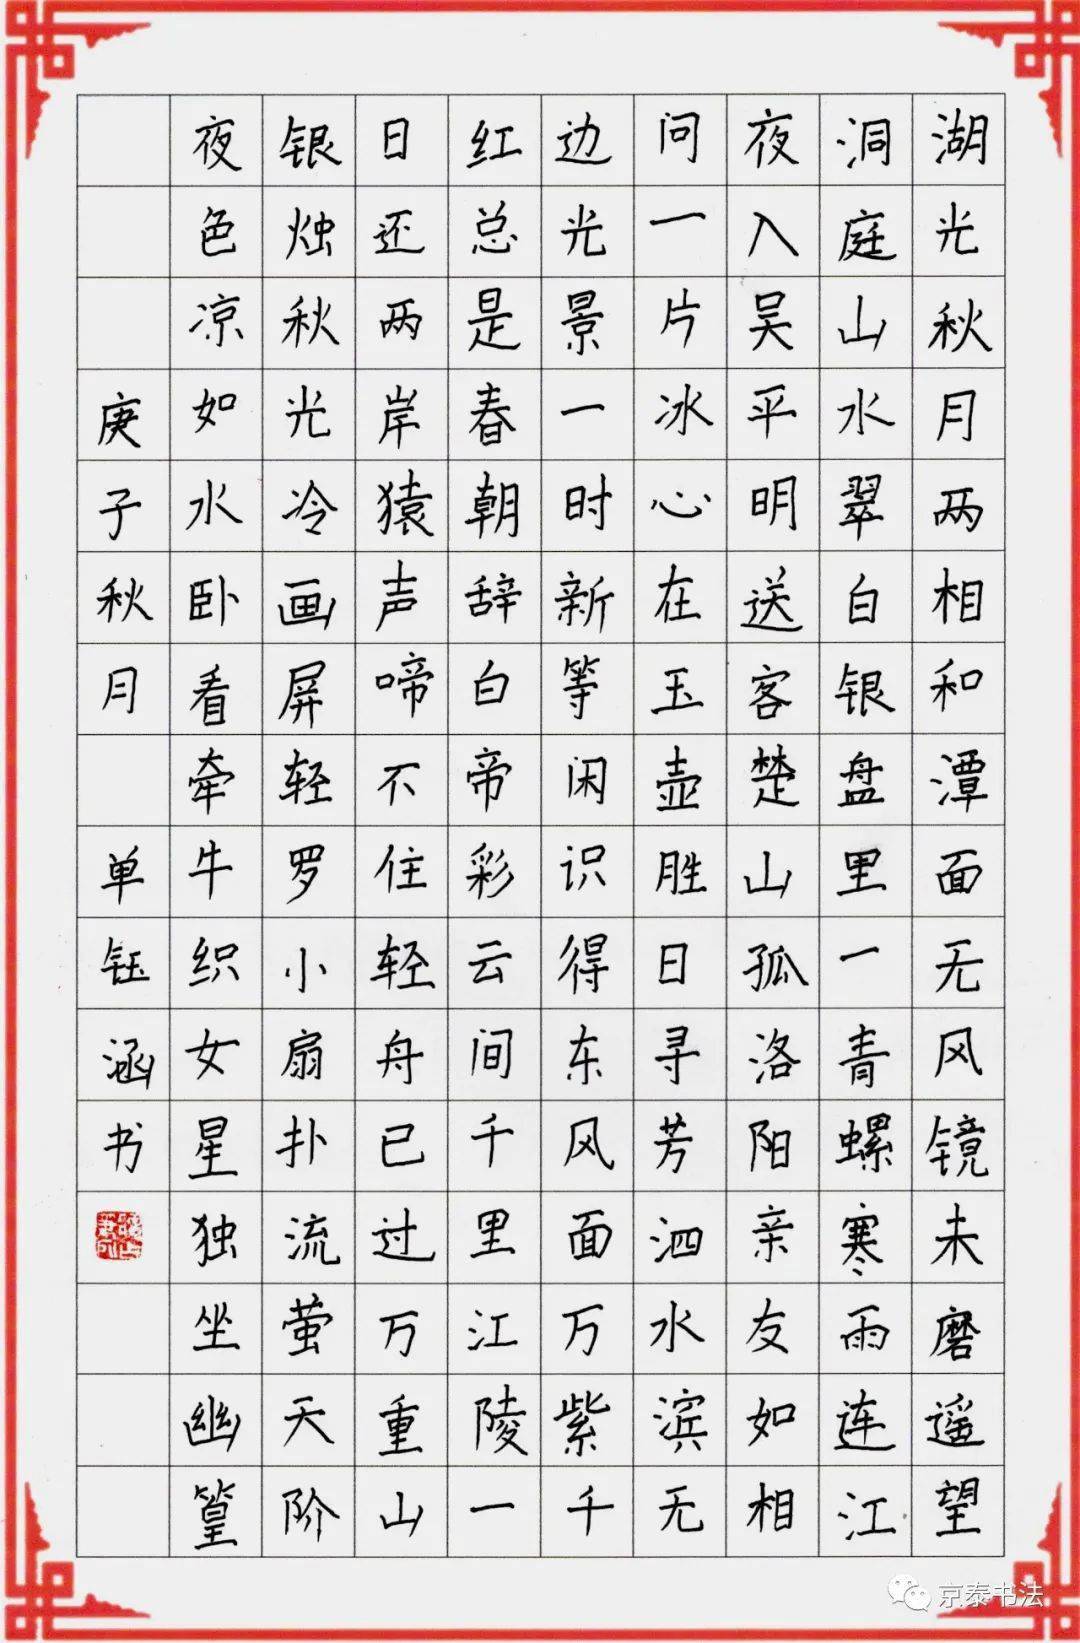 湖光秋月两相和潭面无风镜未磨遥望
洞庭山水翠白银盘里一青螺寒雨连江
夜入吴平明送客楚山孤洛阳亲友如相
问一片冰心在玉壶胜日寻芳泗水滨无
边光景一时新等闲识得东风面万紫千
红总是春朝辞白帝彩云间千里江陵一
日还两岸猿声啼不住轻舟已过万重山
银烛秋光冷画屏轻罗小扇扑流萤天阶
夜色凉如水卧看牵牛织女星独坐幽篁
庚子秋月 单钰涵书
京泰书法